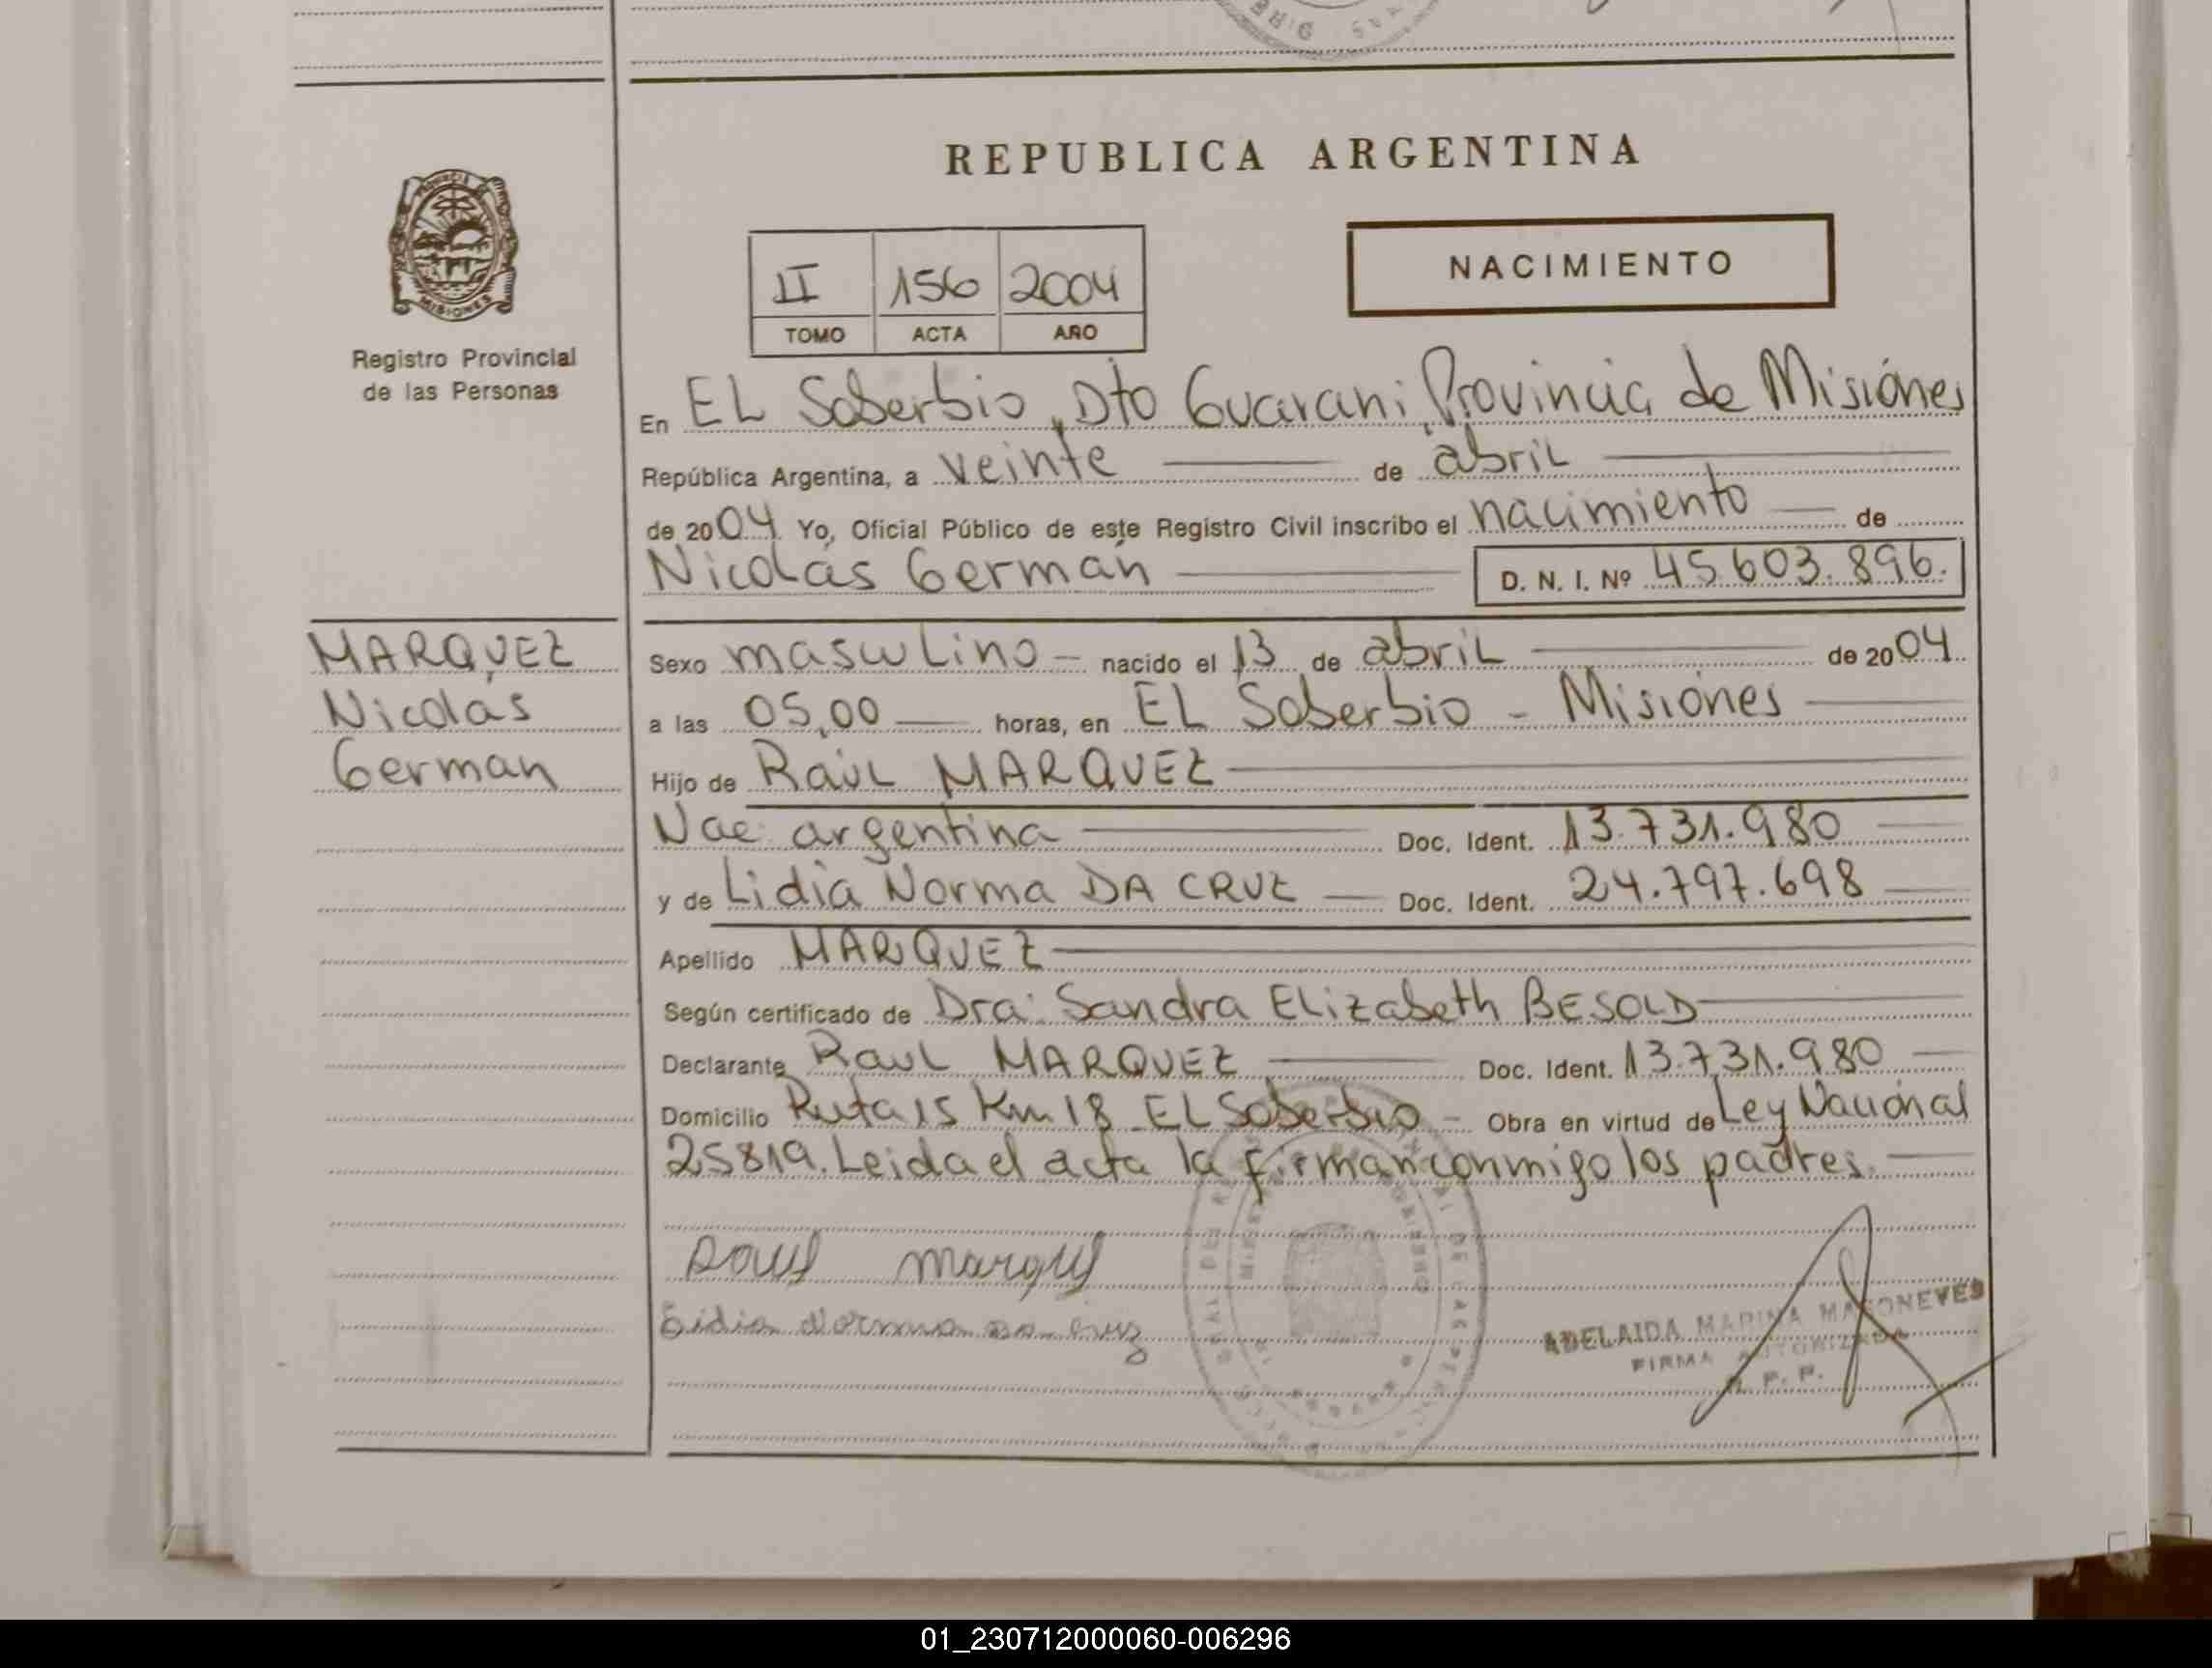 REPUBLICA ARGENTINA
PROVINCIA DE MISIONES
Registro Provincial
de las Personas
II 156 2004
TOMO ACTA AÑO
NACIMIENTO
En EL Soberbio, Dto Guarani, Provincia de Misiones
República Argentina, a veinte de abril
de 2004 Yo, Oficial Público de este Registro Civil inscribo el nacimiento de
Nicolás Germán D. N. I. Nº 45.603.896.
MARQUEZ
Nicolás
Germán
Sexo masculino - nacido el 13 de abril de 2004
a las 05,00 horas, en EL Soberbio - Misiones
Hijo de Raúl MARQUEZ
Nac. argentina Doc. Ident. 13.731.980
y de Lidia Norma DA CRUZ Doc. Ident. 24.797.698
Apellido MARQUEZ
Según certificado de Dra. Sandra Elizabeth BESOLD
Declarante Raul MARQUEZ Doc. Ident. 13.731.980
Domicilio Ruta 15 Km 18 EL Soberbio - Obra en virtud de Ley Nacional
25819. Leida el acta la firman conmigo los padres.
Raul Marquez
Lidia Norma da cruz
ADELAIDA MARINA MASONEVES
FIRMA AUTORIZADA
R. P. P.
01_230712000060-006296